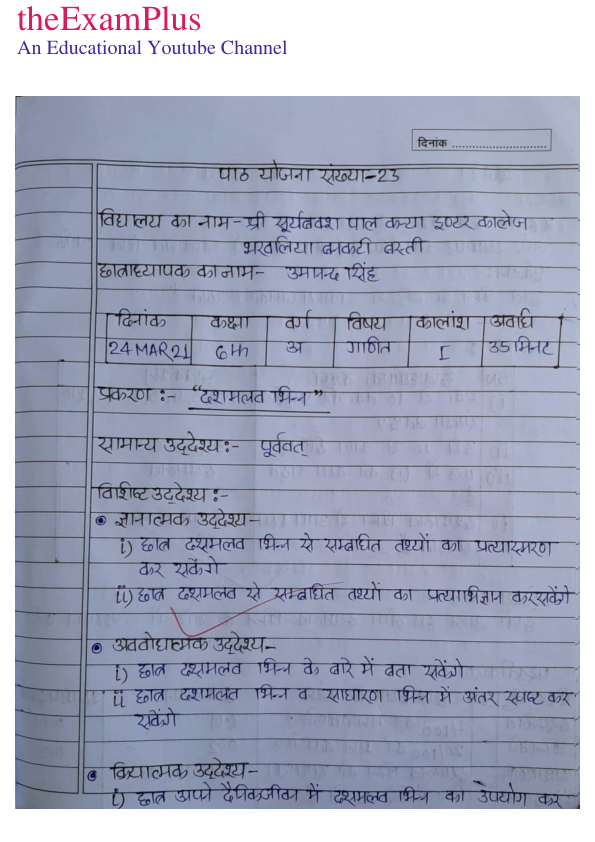 theExamPlus
An Educational Youtube Channel
दिनांक
पाठ योजना संख्या-23
विद्यालय का नाम- श्री सूर्यबक्श पाल कन्या इण्टर कालेज
बनकटी बस्ती
छात्राध्यापक का नाम- सिंह
दिनांक कक्षा वर्ग विषय कालांश अवधि
24 MAR 21 6th अ गणित I 35 मिनट
प्रकरण :- "दशमलव भिन्न"
सामान्य उद्देश्य :- पूर्ववत्
विशिष्ट उद्देश्य :-
ज्ञानात्मक उद्देश्य-
i) छात्र दशमलव भिन्न से सम्बाधित तथ्यों का प्रत्यास्मरण
कर सकेंगे
ii) छात्र दशमलव से सम्बाधित तथ्यों का प्रत्याभिज्ञान कर सकेंगे
अवबोधात्मक उद्देश्य-
i) छात्र दशमलव भिन्न के बारे में बता सकेंगे
ii छात्र दशमलव भिन्न व साधारण भिन्न में अंतर स्पष्ट कर
सकेंगे
क्रियात्मक उद्देश्य-
i) छात्र अपने दैनिकजीवन में दशमलव भिन्न का उपयोग कर